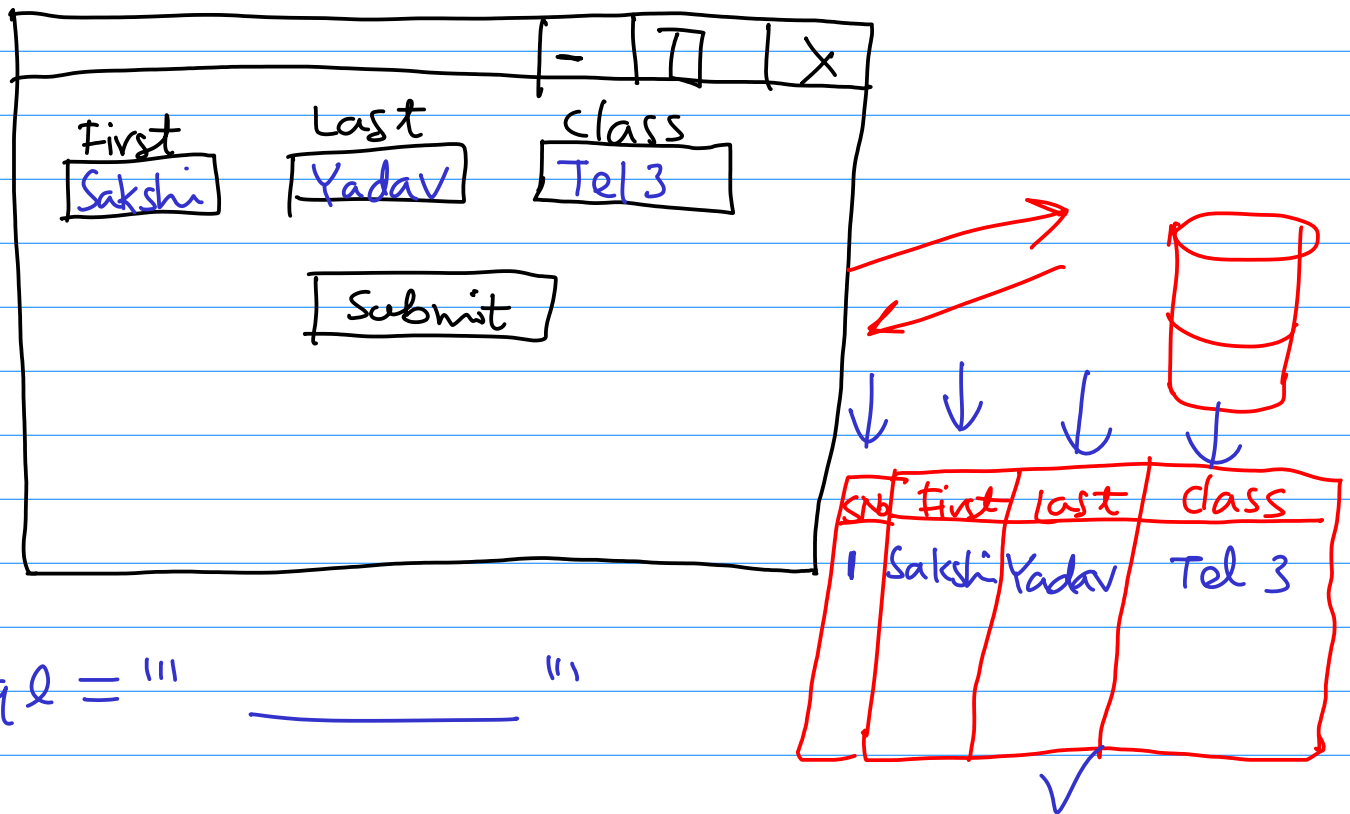 - X
First Last Class
Sakshi Yadav Tel 3
Submit
SNo First Last Class
1 Sakshi Yadav Tel 3
ql = """ """